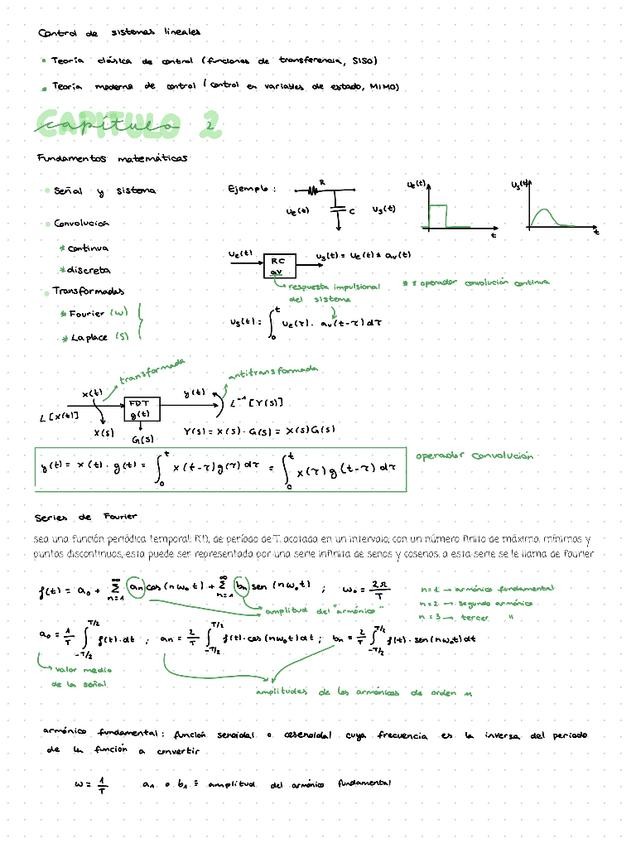 Control de sistemas lineales
• Teoría clásica de control (funciones de transferencia, SISO)
• Teoría moderna de control (control en variables de estado, MIMO)
CAPITULO 2
capítulo 2
Fundamentos matemáticos
• Señal y sistema
Ejemplo:
R
C
Ue(t)
Us(t)
Ue(t)
t
Us(t)
t
• Convolución
* continua
* discreta
Ue(t)
RC
av
Us(t) = Ue(t) * av(t)
respuesta impulsional
del sistema
* = operador convolución continua
• Transformadas
* Fourier (w)
* Laplace (S)
Us(t) = ∫₀ᵗ Ue(τ) · av(t-τ) dτ
transformada
antitransformada
x(t)
L[x(t)]
X(s)
FDT
g(t)
G(s)
y(t)
L⁻¹[Y(s)]
Y(s) = X(s) · G(s) = X(s)G(s)
y(t) = x(t) · g(t) = ∫₀ᵗ x(t-τ)g(τ) dτ = ∫₀ᵗ x(τ)g(t-τ) dτ
operador convolución
Series de Fourier
sea una función periódica temporal f(t), de período de T, acotada en un intervalo, con un número finito de máximo, mínimos y
puntos discontinuos, esta puede ser representada por una serie infinita de senos y cosenos, a esta serie se le llama de Fourier
f(t) = a₀ + Σ n=1 ∞ an cos(nw₀t) + Σ n=1 ∞ bn sen(nw₀t) ; w₀ = 2π/T
amplitud del "armónico"
n=1 → armónico fundamental
n=2 → segundo armónico
n=3 → tercer "
a₀ = 1/T ∫ -T/2 T/2 f(t)·dt ; an = 2/T ∫ -T/2 T/2 f(t)·cos(nw₀t)dt ; bn = 2/T ∫ -T/2 T/2 f(t)·sen(nw₀t)dt
valor medio
de la señal
amplitudes de los armónicos de orden n
armónico fundamental: función senoidal o cosenoidal cuya frecuencia es la inversa del período
de la función a convertir
w = 1/T a₁ o b₁ = amplitud del armónico fundamental